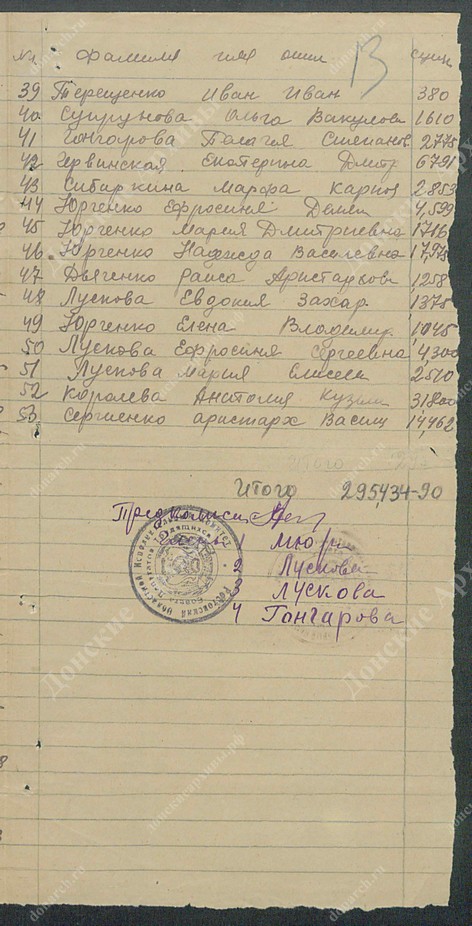 № Фамилия имя отч. сумм
13
39 Терещенко Иван Иван 380
40 Супрунова Ольга Вакулов 1610
41 Гонгарова Пелагия Степанов 2775
42 Червинская Екатерина Дмитр 6791
43 Сибиркина Марфа Карпов 2853
44 Юргенко Ефросиня Демен 4,599
45 Юргенко Мария Дмитриевна 1716
46 Юргенко Надежда Васелевна
47 Дьяченко раиса Аристархов 1258
48 Лускова Евдокия Захар. 1375
49 Юргенко Елена Владимир. 1,045
50 Лускова Ефросиня Сергеевна 4300
51 Лускова мария елисеев 2510
52 Королева Анатолия Кузьм
53 Сергиенко аристарх Васил 14,462
Итого 295,434-90
Предкомисии
Члены 1
2 Лускова
3 Лускова
4 Гонгарова
Донские Архивы
donarch.ru
донскиеархивы.рф